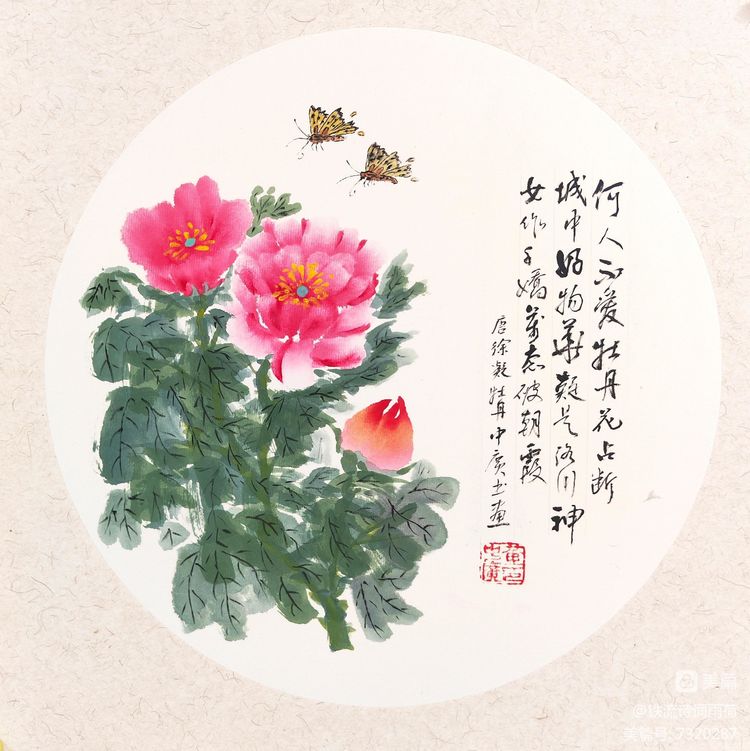 何人不爱牡丹花占断
城中好物华疑是洛川神
女作千娇万态破朝霞
唐徐凝牡丹中广书画
美篇
@铁流荷塘雨荷
美篇号:7320287